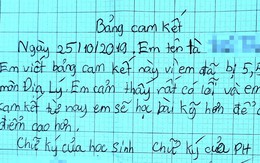 Bảng cam kết
Ngày 25/10/2019. Em tên là
Em viết bảng cam kết này vì em đã bị 5,5
môn Địa Lý. Em cảm thấy rất có lỗi và em
cam kết từ nay em sẽ học bài kỹ hơn để c
điểm cao hơn.
Chữ ký của học sinh Chữ ký của PH